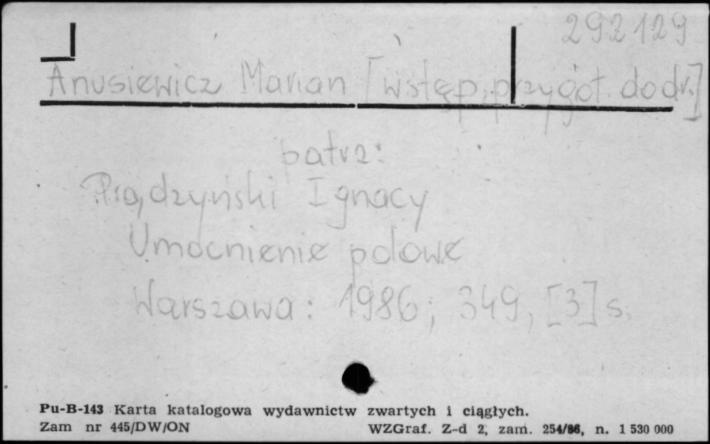 292129
Anusiewicz Marian [wstęp, przygot. do dr.]
patrz:
Prądzyński Ignacy
Umocnienie polowe
Warszawa: 1986; 349, [3] s.
Pu-B-143 Karta katalogowa wydawnictw zwartych i ciągłych.
Zam nr 445/DW/ON WZGraf. Z-d 2, zam. 254/86, n. 1 530 000